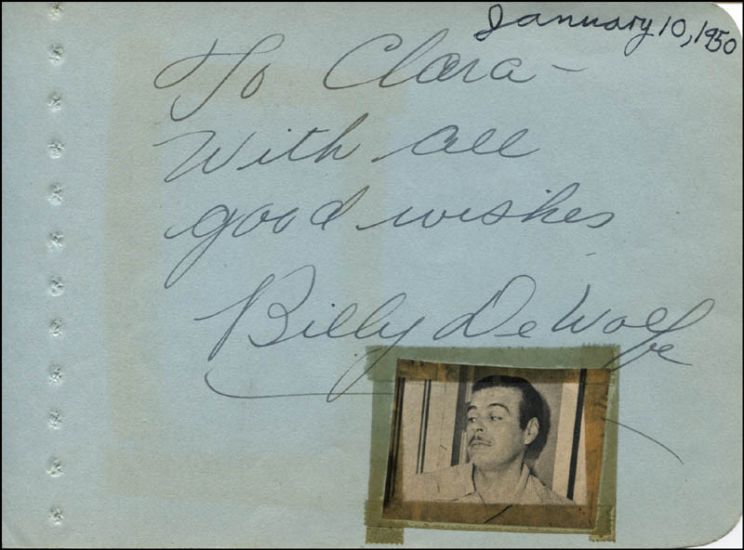 January 10, 1950
To Clara -
With all
good wishes
Billy De Wolfe